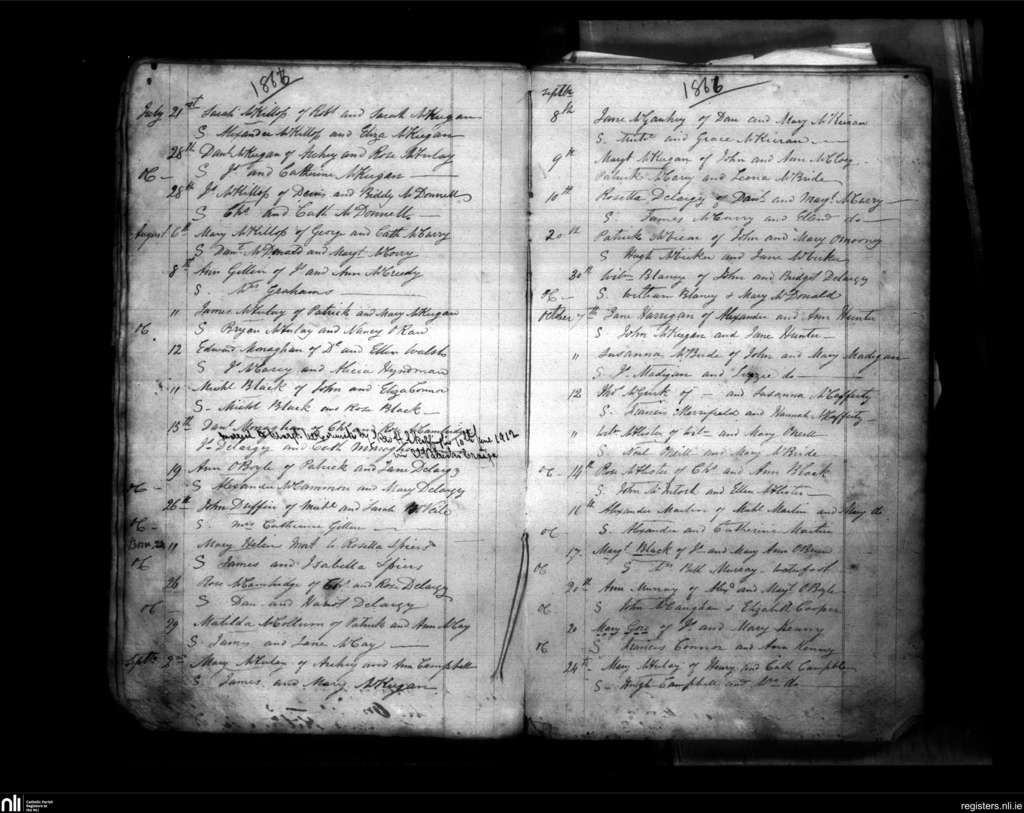 1866
July 21st Sarah McKillop of Robt and Sarah McKeegan
S Alexander McKillop and Eliza McKeegan
28th Danl McKeegan of Archey and Rose McAulay
S Js and Catherine McKeegan
28th Js McKillop of Denis and Biddy McDonnell
S Chs and Cath McDonnell
August 6th Mary McKillop of George and Cath McCarry
S Danl McDonald and Margt
8th Ann Gillen of Js and Ann McCreedy
S. Mrs Grahams
11 James McAulay of Patrick and Mary McKeegan
S Bryan McAulay and Nancy O'Kane
12 Edward Monaghan of Dl and Ellen Walsh
S Js McCarey and Alicia Hyndman
11 Michl Black of John and Eliza Connor
S- Michl Black and Rose Black
13th Danl Monaghan of Chs Rose McCambridge
10th June 1912
Js Delargy and Cath Monaghan
19 Ann O'Boyle of Patrick and Jane Delargy
S Alexander McCammon and Mary Delargy
26th John Duffin of Michl and Sarah McVeile
S. Mrs Catherine Gillen
11 Mary Helen to Rosetta Spiers
S James and Isabella Spiers
26 Rose McCambridge of Chs and Rose Delargy
S Dan and Harriot Delargy
29 Matilda McCollum of Patrick and Ann McCay
S. James and Jane McCay
Septr 2nd Mary McAulay of Archey and Ann Campbell
S James and Mary McKeegan
1866
Septr
8th Jane McGaughey of Dan and Mary McKieran
S and Grace McKieran
9th Margt McKeegan of John and Ann McCoy
Patrick McCary and McBride
10th Rosetta Delargy of Danl and Margt McCurry
S. James McCurry and Ellen do
20th Patrick of John and Mary
S Hugh and Jane
30th Wilm Blaney of John and Bridget Delargy
S. William Blaney & Mary McDonald
October 7th Jane Harrigan of Alexander and Ann Hunter
S. John McKeegan and Jane Hunter
11 Susanna McBride of John and Mary Madigan
S Js Madigan and Lizzie do
12 Thos McGurk of — and Susanna McCafferty
S. Francis and Hannah McCafferty
11 Wilm McAlister of Wilm and Mary O'Neill
S. Neal O'Neill and Mary McBride
14th Rose McAlister of Chs and Ann Black
S. John McIntosh and Ellen McAlister
16th Alexander Martin of Michl Martin and Mary do
S. Alexander and Catherine Martin
17. Margt Black of Js and Mary Ann O'Brien
S Murray - Waterfoot
20th Ann Murray of Alexr and Margt O'Boyle
S John McCaughan & Elizabeth Cooper
20 Mary Gore of Js and Mary Kenny
S Francis Connor and Ann Kenny
24th Mary McAulay of Henry and Cath Campbell
S- Hugh Campbell and do
nli Catholic Parish
Registers at
the NLI
registers.nli.ie